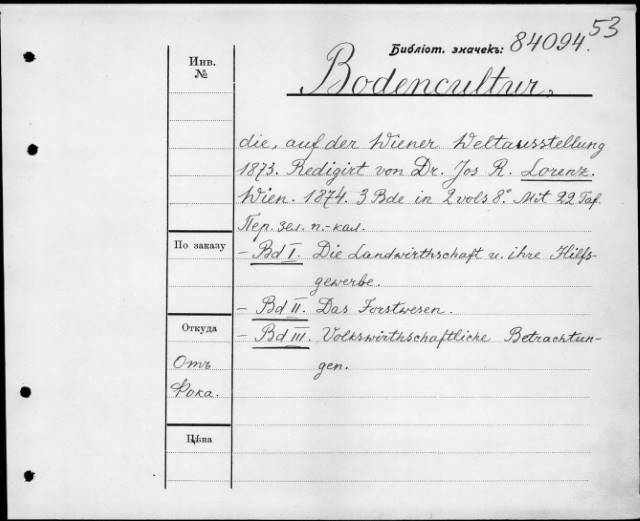 53
Библіот. значекъ: 84094.
Инв.
№
Bodencultur,
die, auf der Wiener Weltausstellung
1873. Redigirt von Dr. Jos R. Lorenz.
Wien. 1874. 3 Bde in 2 vols 8.° Mit 22 Taf.
Пер. зел. п.-кал.
По заказу
– Bd I. Die Landwirthschaft u. ihre Hilfs-
gewerbe.
– Bd II. Das Forstwesen.
Откуда
– Bd III. Volkswirthschaftliche Betrachtun-
gen.
Отъ
Фока.
Цѣна